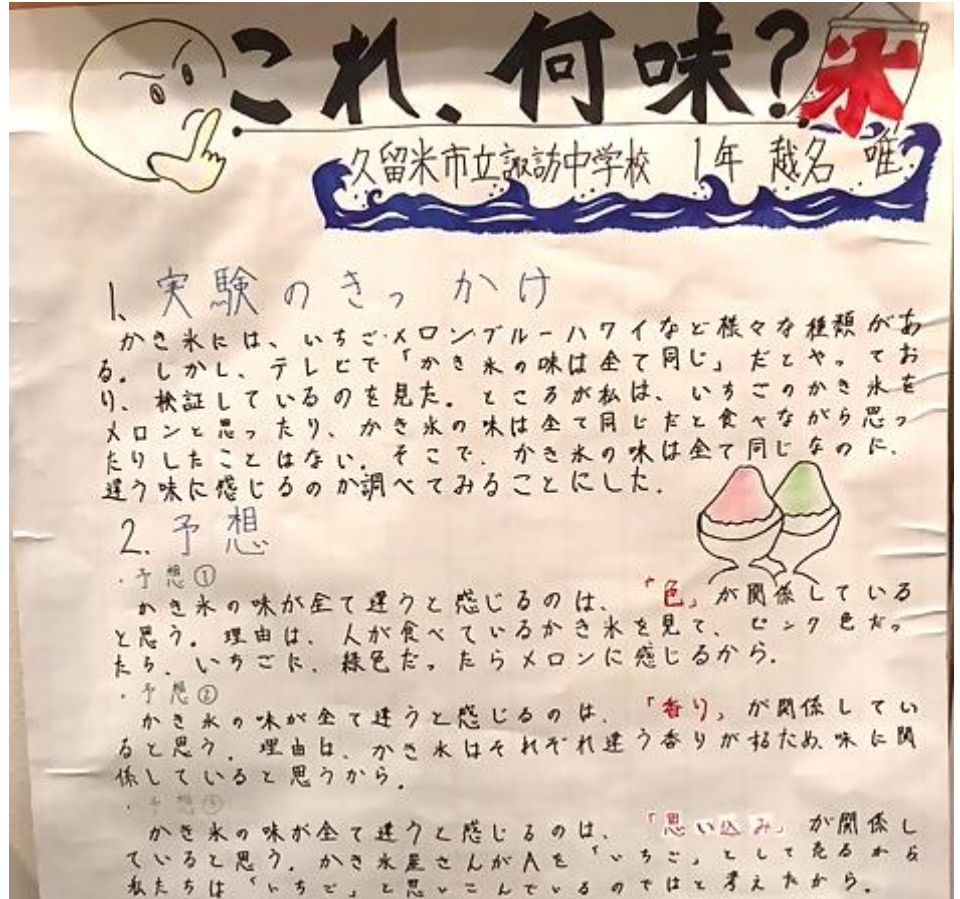 これ、何味?
氷
久留米市立諏訪中学校 1年 越名 唯
1. 実験のきっかけ
かき氷には、いちご・メロン・ブルーハワイなど様々な種類があ
る。しかし、テレビで「かき氷の味は全て同じ」だとやってお
り、検証しているのを見た。ところが私は、いちごのかき氷を
メロンと思ったり、かき氷の味は全て同じだと食べながら思っ
たりしたことはない。そこで、かき氷の味は全て同じなのに、
違う味に感じるのか調べてみることにした。
2. 予想
・予想①
かき氷の味が全て違うと感じるのは、「色」が関係している
と思う。理由は、人が食べているかき氷を見て、ピンク色だっ
たら、いちごに、緑色だったらメロンに感じるから。
・予想②
かき氷の味が全て違うと感じるのは、「香り」が関係してい
ると思う。理由は、かき氷はそれぞれ違う香りがするため、味に関
係していると思うから。
・予想③
かき氷の味が全て違うと感じるのは、「思い込み」が関係し
ていると思う。かき氷屋さんがAを「いちご」として売るから
私たちは「いちご」と思いこんでいるのではと考えたから。